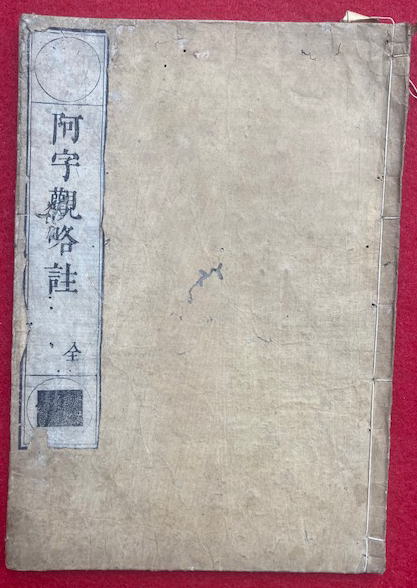 阿字觀略註
全